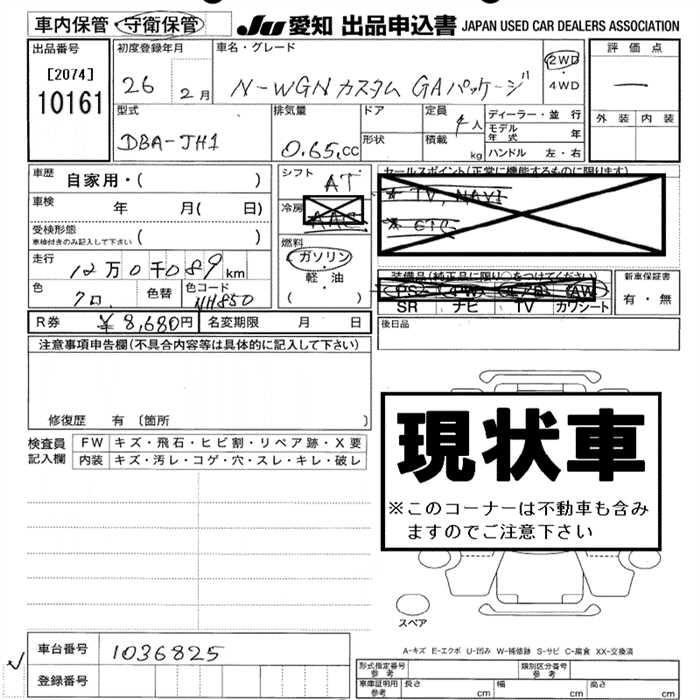 車内保管・守衛保管 JU 愛知 出品申込書 JAPAN USED CAR DEALERS ASSOCIATION
出品番号 初度登録年月 車名・グレード 評価点
[2074] 26 2月 N-WGN カスタム GAパッケージ 2WD・4WD ―
10161
外装 内装
型式 排気量 ドア 定員 4人 ディーラー・並行
DBA-JH1 0.65.cc 形状 積載 kg モデル年式 年
ハンドル 左・右
車歴 自家用・( ) シフト AT セールスポイント(正常に機能するものに限ります)
車検 年 月( 日) 冷房 AAC ★ TV, NAVI
受検形態 ( ) ★ ETC
車検付きのみ記入して下さい
走行 12万0千089km 燃料 ガソリン・軽・油 ( )
装備品(純正品に限り○をつけてください) 新車保証書
色 クロ. 色替 色コード NH850 PS PW エアB AW 有・無
SR ナビ TV カワシート
R券 ¥8,680円 名変期限 月 日 後日品
注意事項申告欄(不具合内容等は具体的に記入して下さい)
修復歴 有 〔箇所 〕
検査員記入欄 FW キズ・飛石・ヒビ割・リペア跡・X要
内装 キズ・汚レ・コゲ・穴・スレ・キレ・破レ
現状車
※このコーナーは不動車も含み
ますのでご注意下さい
スペア
A-キズ E-エクボ U-凹み W-補修跡 S-サビ C-腐食 XX-交換済
車台番号 1036825
登録番号
形式指定番号 参考 類別区分番号 参考
車庫証明用 参考 長さ cm 幅 cm 高さ cm